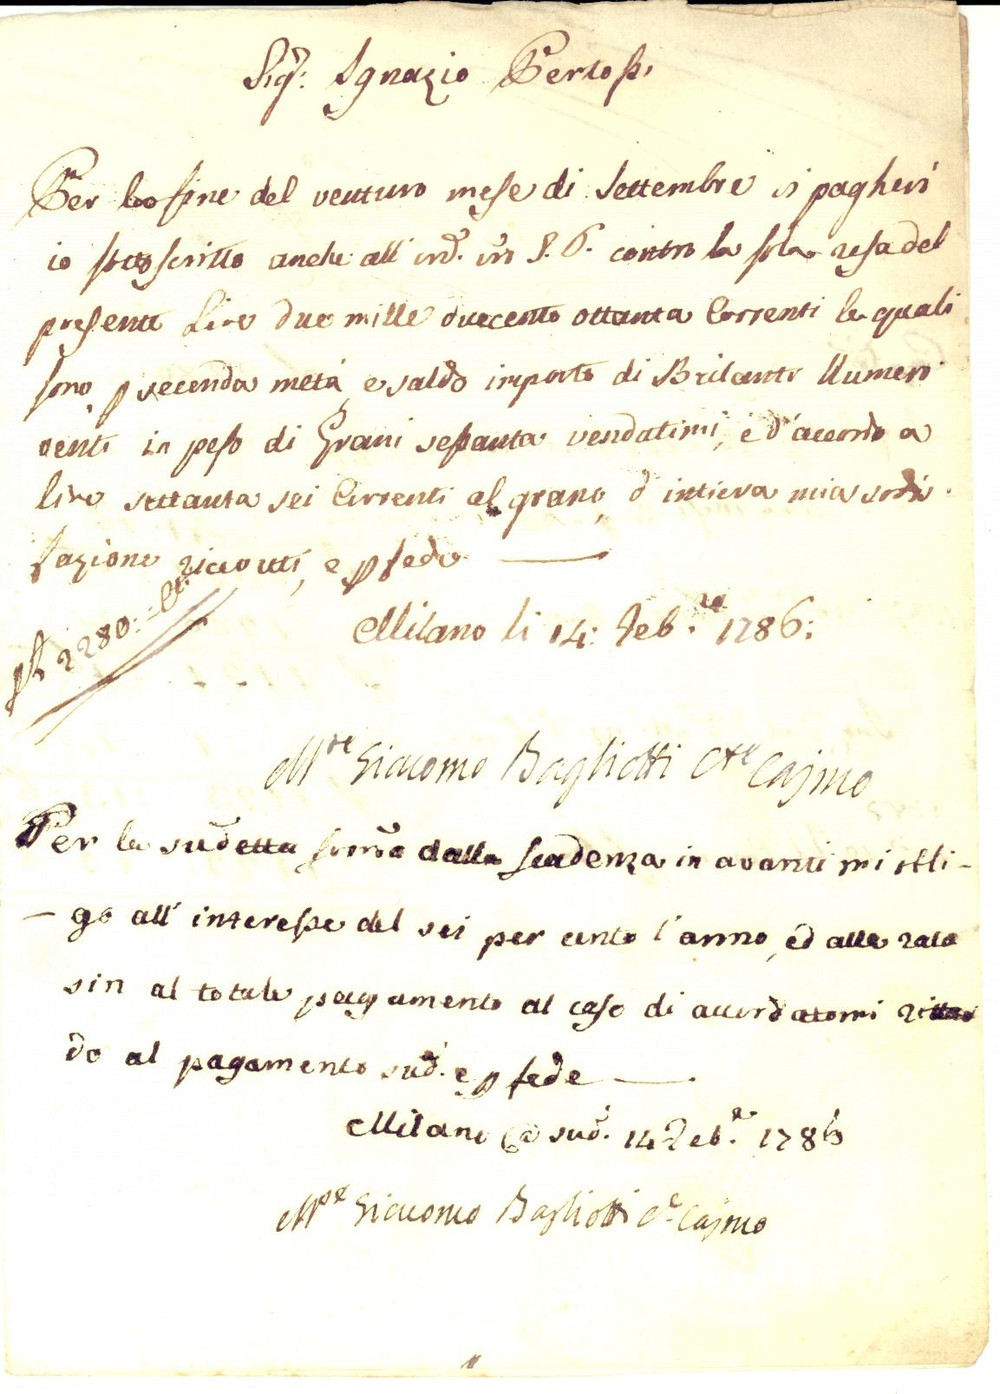 Sig.r Ignazio Pertossi
Per il fine del venturo mese di Settembre vi pagherò
io sottoscritto anche all' ord.e vro S. P. contro la sola resa del
presente Lire due mille duecento ottanta Correnti le quali
sono p seconda metà, e saldo importo di Brilanti Numero
venti in peso di Grani sessanta vendutimi, e d'accordo a
lire settanta sei Correnti al grano, d' intiera mia sodis
fazione ricevuti, e p fede
2280:
Milano li 14: Feb.ro 1786:
M.se Giacomo Bagliotti C.te Cajmo
Per la sudetta somma dalla scadenza in avanti mi obli-
- go all' interesse del sei per cento l'anno, ed alla rata
sin al totale pagamento al caso di accordatomi ritar
do al pagamento sud.o e p fede
Milano sud.o 14 Feb.o 1786
M.se Giacomo Bagliotti C.e Cajmo